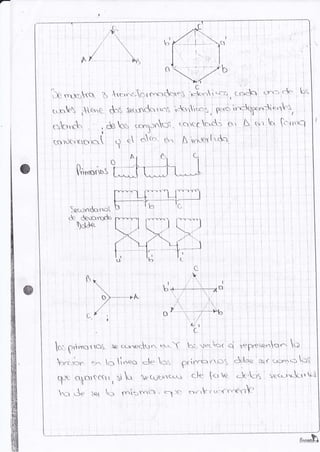 A
B
C
b'
a'
a
b
Se muestra 3 transformadores identicos, cada uno de los
cuales tiene dos secundarios identicos, pero independientes,
estando de los conjuntos, conectado en Δ en la forma
convencional y el otro en Δ invertida
O A B C
Primarios
Secundarios a b c
de devanado
Doble
a' b' c'
B
O A
C
C
b a'
a b'
c'
los primarios se conectan en Y los vectores representan la
tensión en la línea de los primarios debe ser como los
que aparecen, si la secuencia de fase de los secundarios
ha de ser la misma que anteriormente